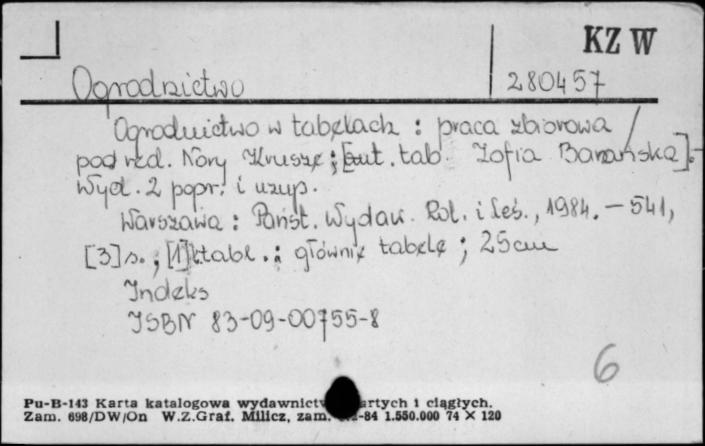 KZ W
Ogrodnictwo 280457
Ogrodnictwo w tabelach : praca zbiorowa /
pod red. Nory Krusze ; [aut. tab. Zofia Barańska]. -
Wyd. 2 popr. i uzup.
Warszawa : Państ. Wydaw. Rol. i Leś., 1984. - 541,
[3] s., [1] k. tabl. : głównie tabele ; 25 cm
Indeks
ISBN 83-09-00755-8
6
Pu-B-143 Karta katalogowa wydawnictw artych i ciągłych.
Zam. 698/DW/On W.Z.Graf. Milicz, zam. -84 1.550.000 74 × 120